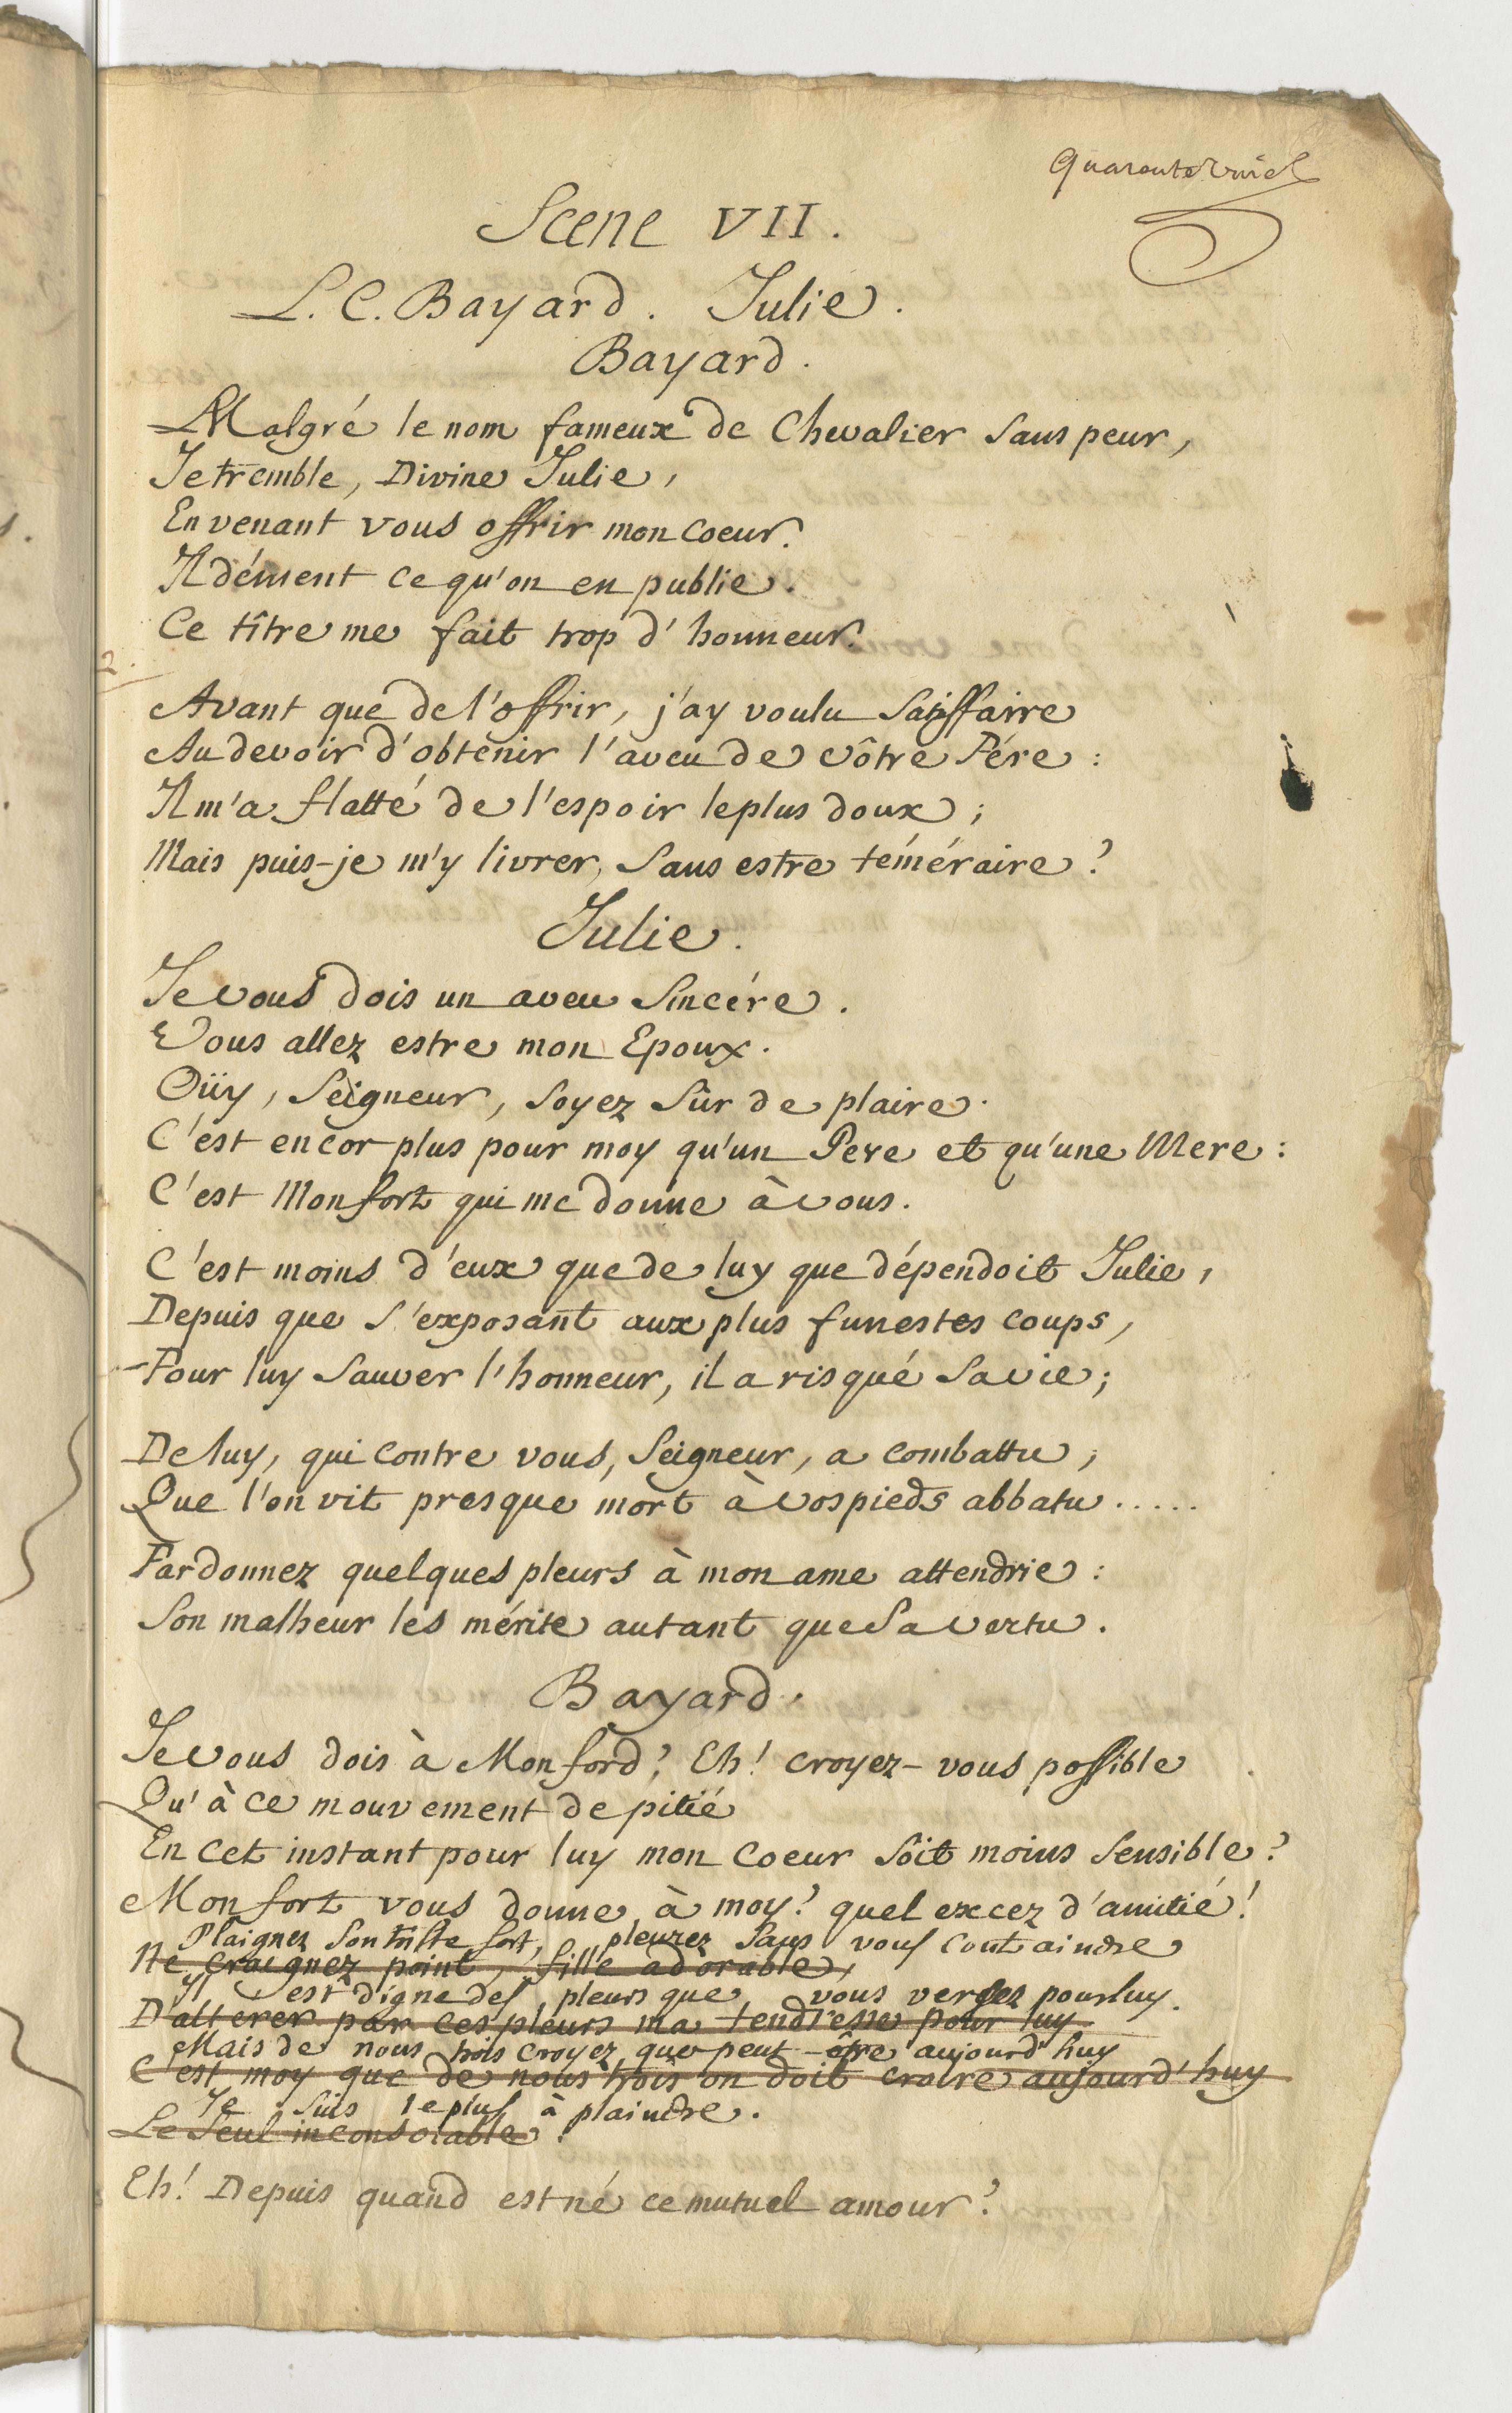 Quarante trois
Scene VII.
L. C. Bayard. Julie.
Bayard.
Malgré le nom fameux de Chevalier sans peur,
Je tremble, Divine Julie,
En venant vous offrir mon coeur.
Il dément ce qu'on en publie.
Ce tître me fait trop d'honneur.
2.
Avant que de l'offrir, j'ay voulu satisffaire
Au devoir d'obtenir l'aveu de vôtre Pére :
Il m'a flatté de l'espoir le plus doux ;
Mais puis-je m'y livrer, sans estre téméraire ?
Julie.
Je vous dois un aveu sincére.
Vous allez estre mon Epoux.
Oüy, Seigneur, soyez sûr de plaire.
C'est encor plus pour moy qu'un Pere et qu'une Mere :
C'est Monfort qui me donne à vous.
C'est moins d'eux que de luy que dépendoit Julie,
Depuis que s'exposant aux plus funestes coups,
Pour luy sauver l'honneur, il a risqué sa vie ;
De luy, qui contre vous, Seigneur, a combattu,
Que l'on vit presque mort à vos pieds abbatu .....
Pardonnez quelques pleurs à mon ame attendrie :
Son malheur les mérite autant que sa vertu.
Bayard.
Je vous dois à Monford ? Eh ! croyez-vous possible
Qu'à ce mouvement de pitié
En cet instant pour luy mon coeur soit moins sensible ?
Monfort vous donne à moy ? quel excez d'amitié !
Plaignez son triste sort, pleurez sans vous contraindre
Ne craignez point, fille adorable,
Il est digne des pleurs que vous versez pour luy.
D'alterer par ces pleurs ma tendresse pour luy
Mais de nous trois croyez que peut-être aujourd'huy
C'est moy que de nous trois on doit croire aujourd'huy
Je suis le plus à plaindre.
Le seul inconsolable.
Eh ! Depuis quand est né ce mutuel amour ?